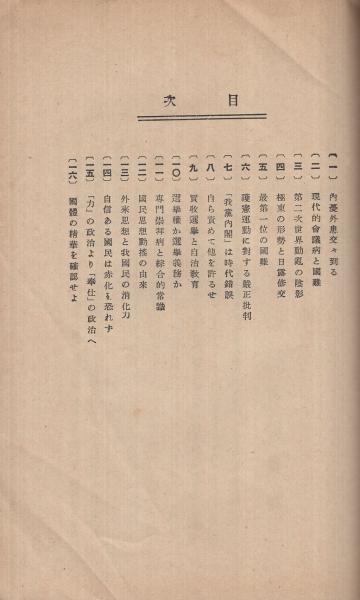 目次
〔一〕 內憂外患交々到る
〔二〕 現代的會議病と國難
〔三〕 第二次世界動亂の陰影
〔四〕 極東の形勢と日露修交
〔五〕 最第一位の國難
〔六〕 護憲運動に對する嚴正批判
〔七〕 「我黨內閣」は時代錯誤
〔八〕 自ら責めて他を許るせ
〔九〕 買收選擧と自治敎育
〔一〇〕 選擧權か選擧義務か
〔一一〕 專門崇拜病と綜合的常識
〔一二〕 國民思想動搖の由來
〔一三〕 外來思想と我國民の消化力
〔一四〕 自信ある國民は赤化を恐れず
〔一五〕 「力」の政治より「奉仕」の政治へ
〔一六〕 國體の精華を確認せよ